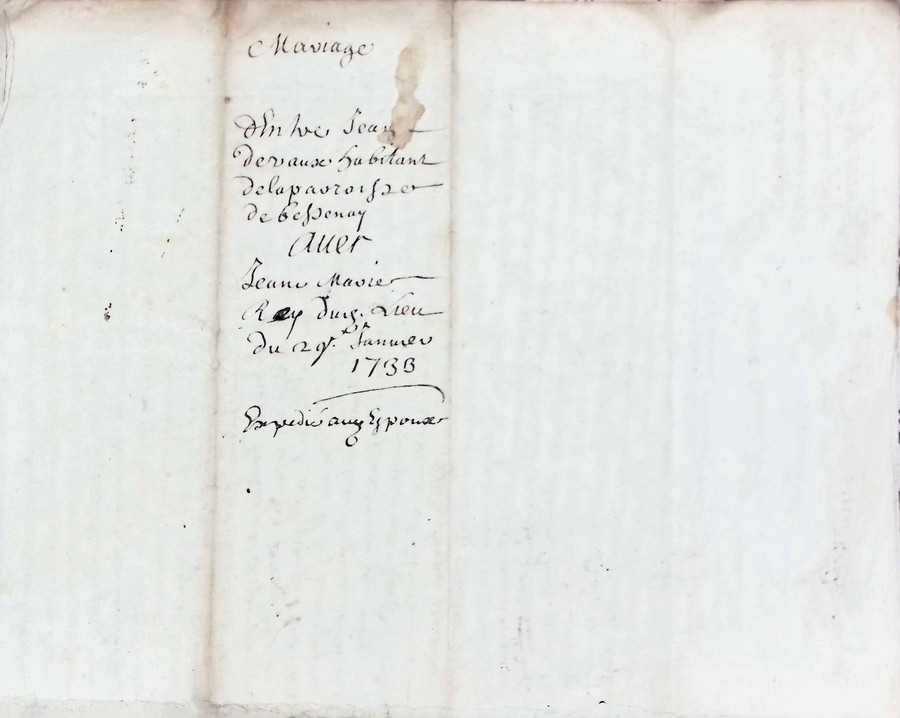 Mariage
d'Entre Jean
devaux habitant
delaparoisse
de bessenay
Avec
Jeane Marie
Rey du Lieu
Du 29e Janvier
1733
Expedié aux Epoux